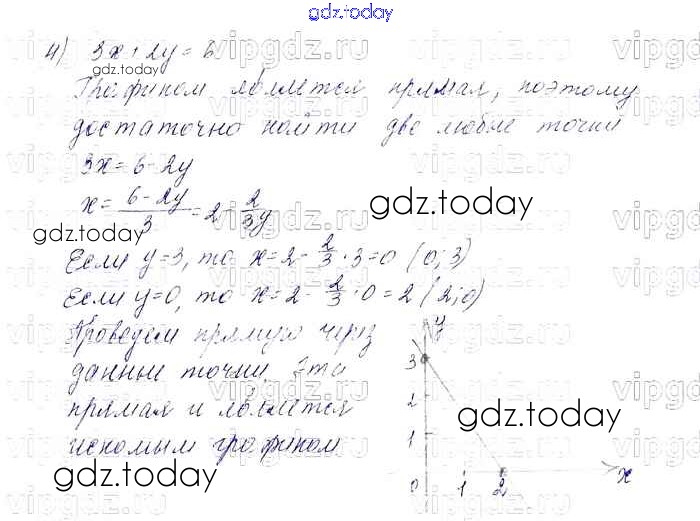 gdz.today
4) 3x+2y=6
Графиком является прямая, поэтому
достаточно найти две любые точки
3x=6-2y
x=\frac{6-2y}{3}=2-\frac{2}{3}y
Если y=3, то x=2-\frac{2}{3}·3=0 (0;3)
Если y=0, то x=2-\frac{2}{3}·0=2 (2;0)
Проведем прямую через
данные точки Эта
прямая и является
искомым графиком
y
3
2
1
0 1 2 x
gdz.today
gdz.today
gdz.today
gdz.today
gdz.today
vipgdz.ru
vipgdz.ru
vipgdz.ru
vipgdz.ru